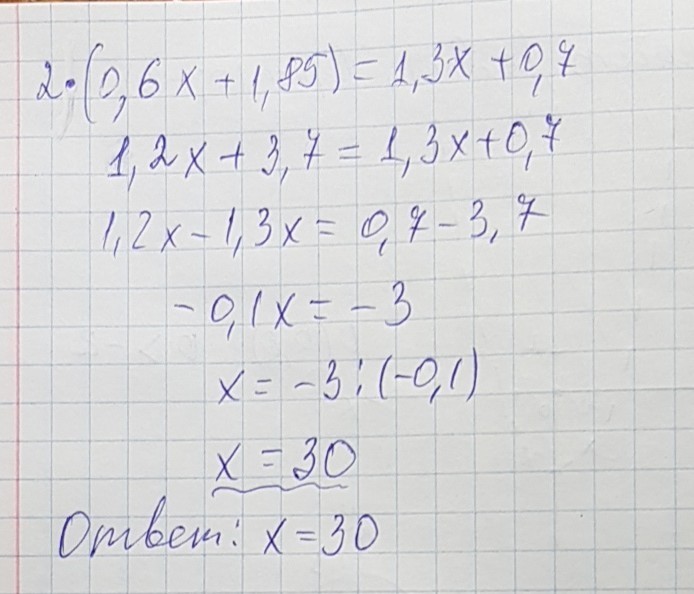 2·(0,6x+1,85)=1,3x+0,7
1,2x+3,7=1,3x+0,7
1,2x-1,3x=0,7-3,7
-0,1x=-3
x=-3:(-0,1)
x=30
Ответ: x=30